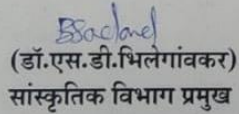 (डॉ.एस.डी.भिलेगांवकर)
सांस्कृतिक विभाग प्रमुख